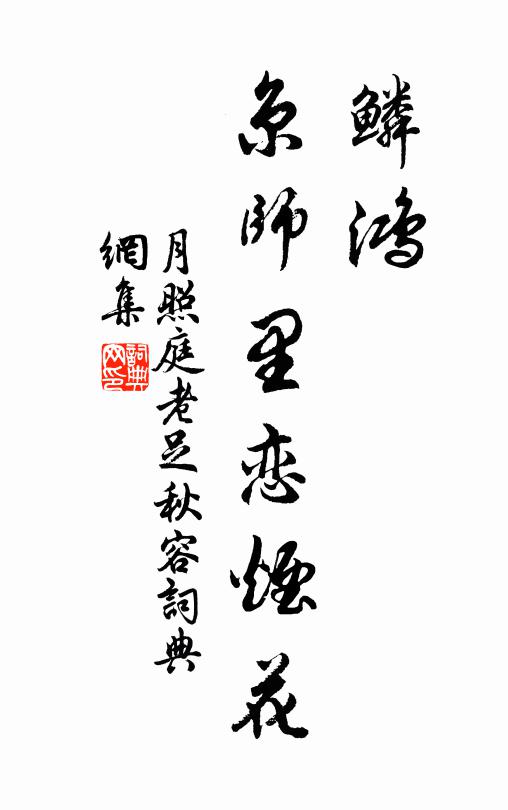 鱗鴻
京師里恋煙花
月照庭老足秋容詞典
網集
詞典
网印